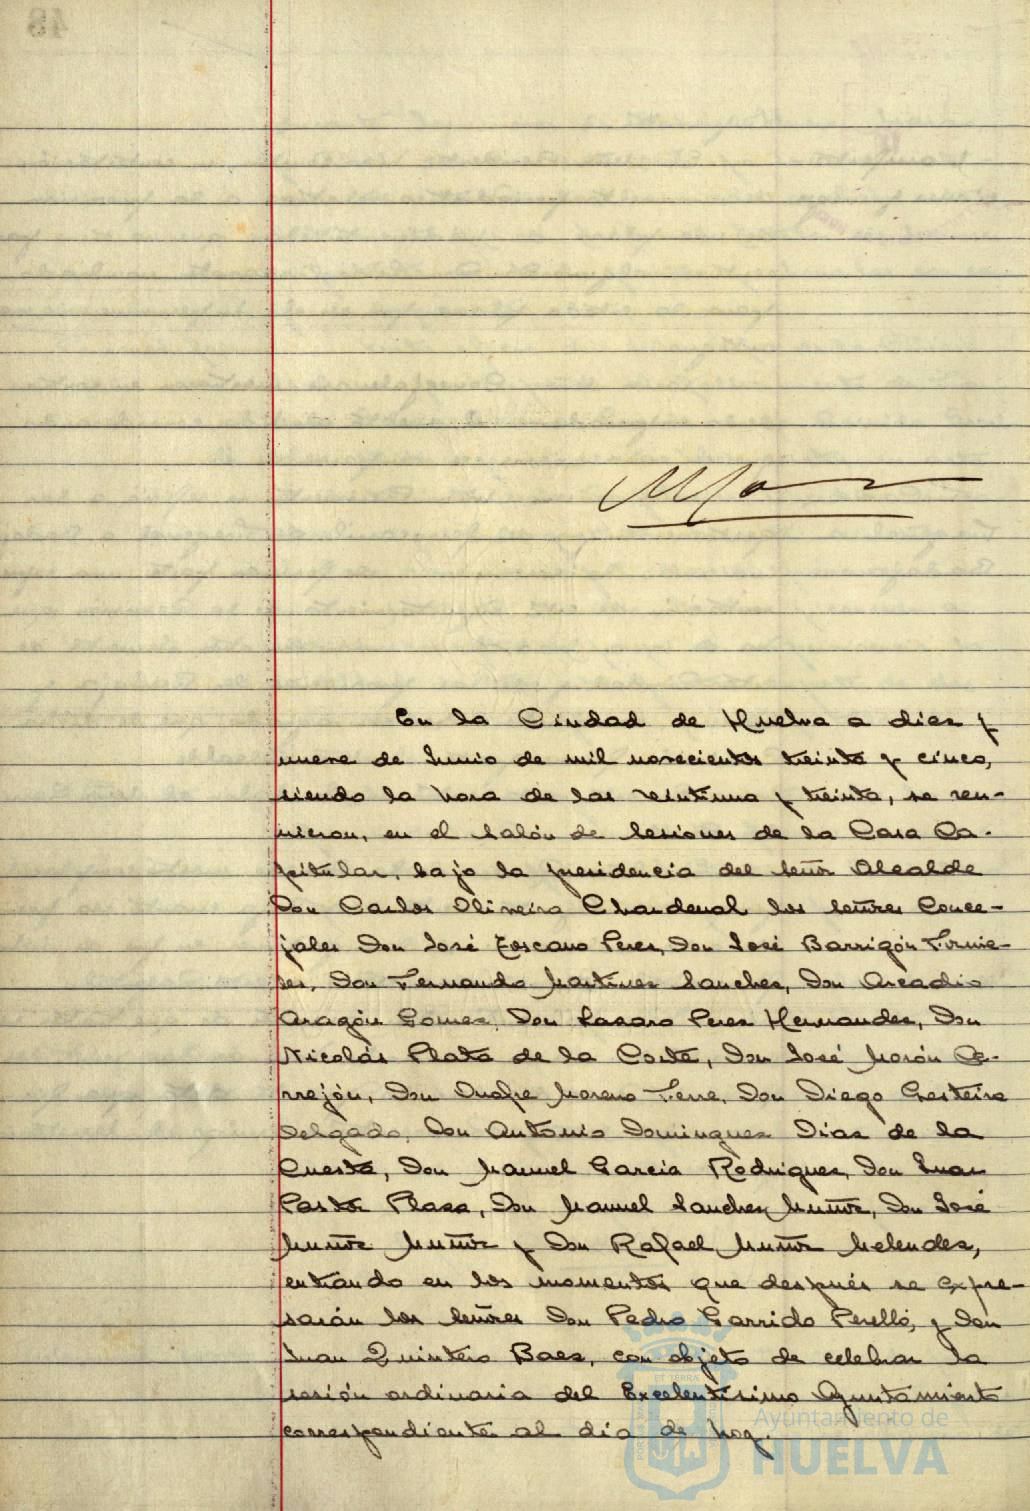 En la Ciudad de Huelva a diez y
nueve de Junio de mil novecientos treinta y cinco,
siendo la hora de las veintiuna y treinta, se reu-
nieron, en el Salón de Sesiones de la Casa Ca-
pitular, bajo la presidencia del Señor Alcalde
Don Carlos Oliveira Chardenal los Señores Conce-
jales Don José Toscano Perez, Don José Barrigón Fornie-
les, Don Fernando Martinez Sanchez, Don Arcadio
Aragón Gomez, Don Lazaro Perez Hernandez, Don
Nicolás Plata de la Corte, Don José Morón Ce-
rrejón, Don Onofre Moreno Terre, Don Diego Gesteira
Delgado, Don Antonio Dominguez Diaz de la
Cuesta, Don Manuel Garcia Rodriguez, Don Juan
Plaza, Don Manuel Sanchez Muñoz, Don José
Muñoz Muñoz y Don Rafael Muñoz Melendez,
entrando en los momentos que después se expre-
sarán los Señores Don Pedro Garrido Perelló, y Don
Juan Quintero Baez, con objeto de celebrar la
sesión ordinaria del Excelentísimo Ayuntamiento
correspondiente al dia de hoy.
Ayuntamiento de
HUELVA